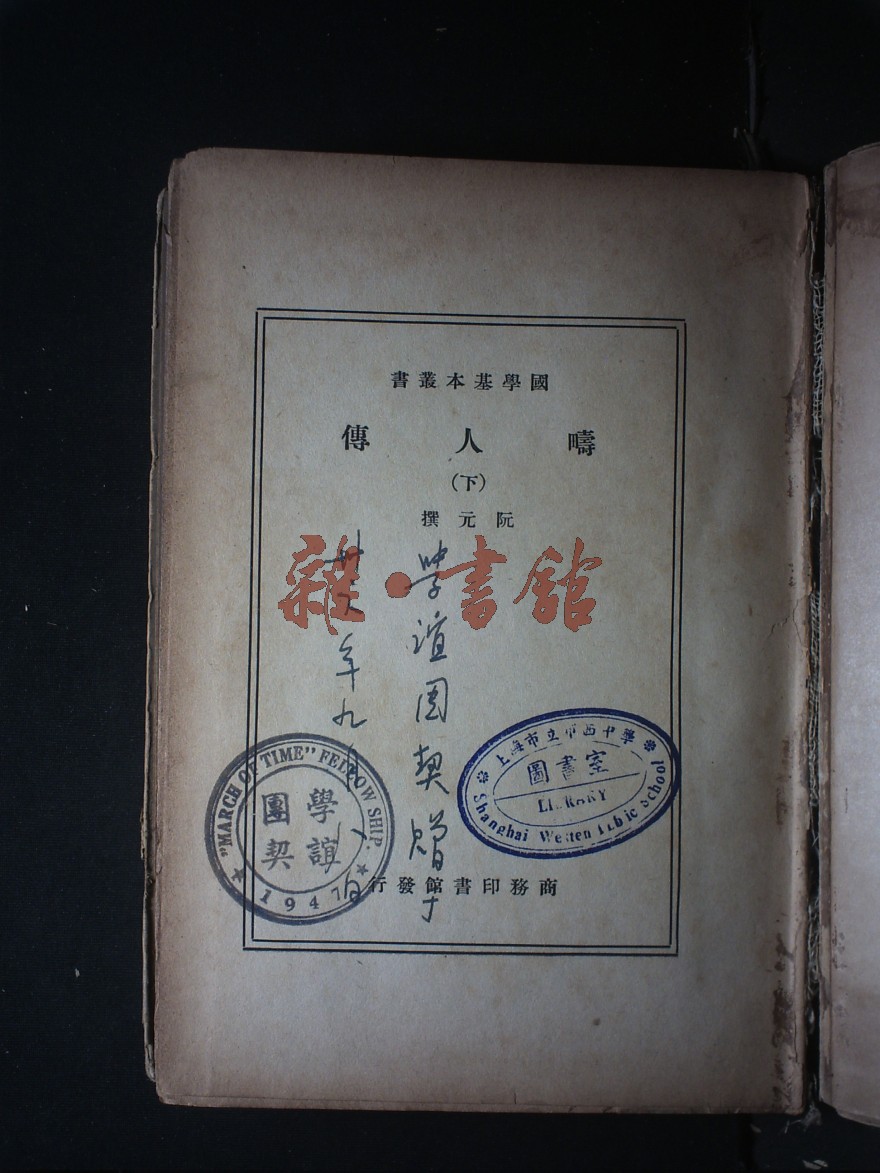 國學基本叢書
疇人傳
(下)
阮元撰
雜·書館
學誼团契贈于
卅六年九月八日
上海市立市西中學
圖書室
LIBRARY
Shanghai Westen Public School
"MARCH OF TIME" FELLOW SHIP.
學誼
團契
1947
商務印書館發行